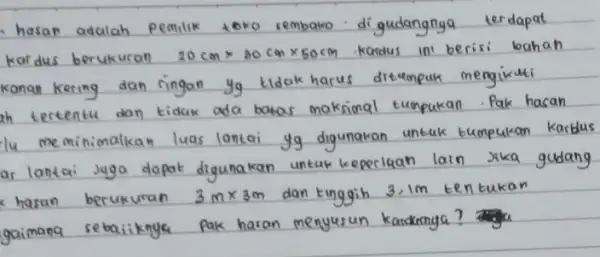 hasan adalah pemilik toko sembako. di gudangnya terdapat
kardus berukuran 20 cm x 30 cm x 50 cm. kardus ini berisi bahan
kanan kering dan ringan yg tidak harus ditumpuk mengikuti
ah tertentu dan tidak ada batas maksimal tumpukan. Pak hasan
lu meminimalkan luas lantai yg digunakan untuk tumpukan kardus
ar lantai juga dapat digunakan untuk keperluan lain jika gudang
k hasan berukuran 3 m x 3m dan tinggih 3,1m tentukan
gaimana sebaiiknya Pak hasan menyusun kardusnya?